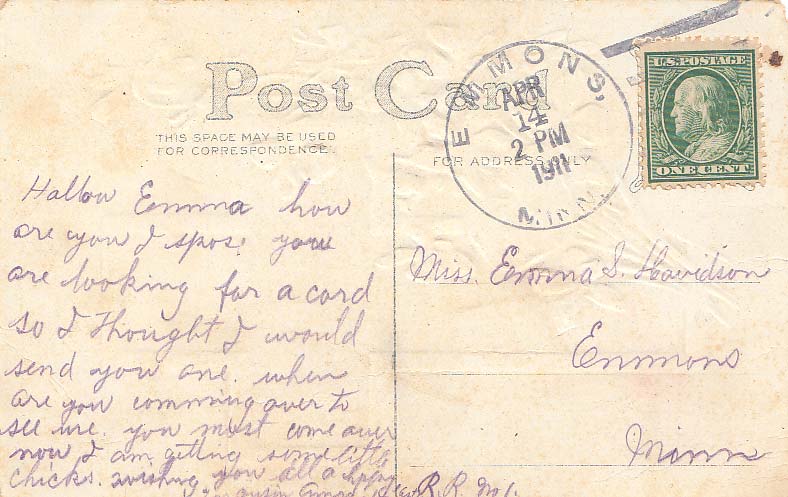 Post Card
THIS SPACE MAY BE USED
FOR CORRESPONDENCE.
FOR ADDRESS ONLY
EMMONS,
APR
14
2 PM
1911
MINN.
U.S. POSTAGE
ONE CENT
Hallow Emma how
are you I spose you
are looking for a card
so I thought I would
send you one. when
are you comming over to
see me. you must come over
now I am geting some little
chicks. wishing you all a happy
Miss. Emma S. Havidson
Emmons
Minn
R. R. No 1.